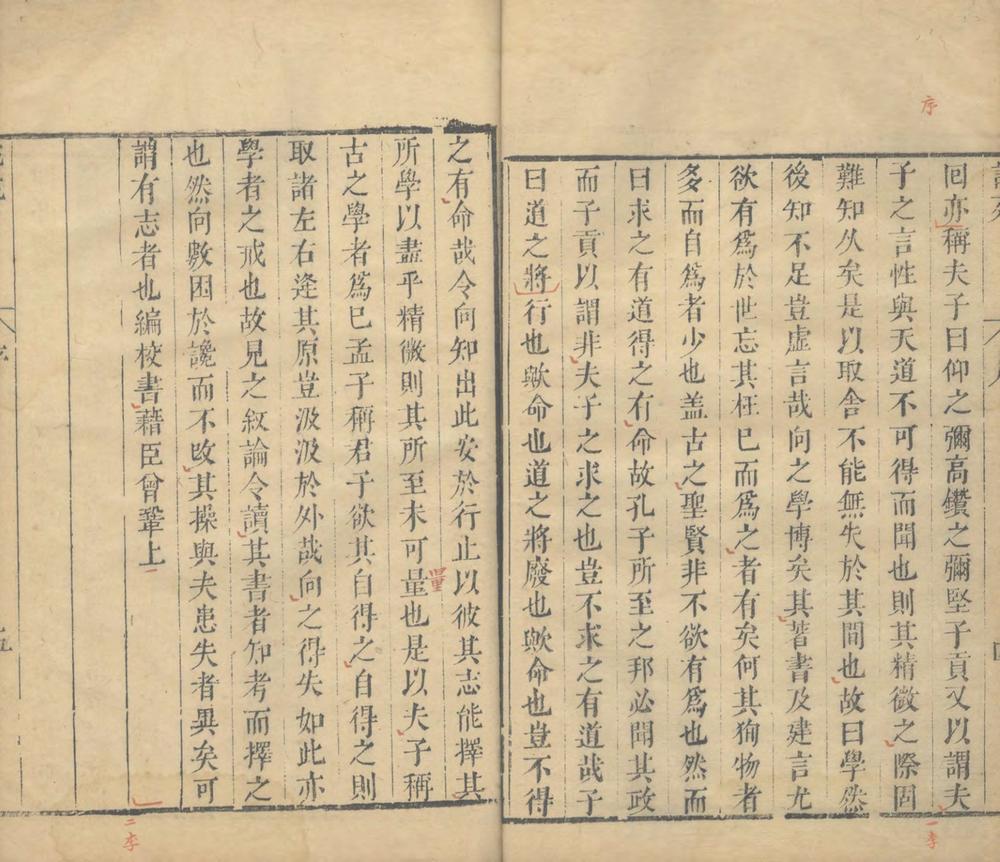 序
回亦稱夫子曰仰之彌高鑽之彌堅子貢又以謂夫
子之言性與天道不可得而聞也則其精微之際固
難知久矣是以取舍不能無失於其間也故曰學然
後知不足豈虛言哉向之學博矣其著書及建言尤
欲有爲於世忘其枉已而爲之者有矣何其狥物者
多而自爲者少也盖古之聖賢非不欲有爲也然而
曰求之有道得之有命故孔子所至之邦必聞其政
而子貢以謂非夫子之求之也豈不求之有道哉子
曰道之將行也歟命也道之將廢也歟命也豈不得
一李
之有命哉令向知出此安於行止以彼其志能擇其
所學以盡乎精微則其所至未可量也是以夫子稱
量
古之學者爲已孟子稱君子欲其自得之自得之則
取諸左右逢其原豈汲汲於外哉向之得失如此亦
學者之戒也故見之敘論令讀其書者知考而擇之
也然向數困於讒而不改其操與夫患失者異矣可
謂有志者也編校書藉臣曾鞏上
二李
序
五